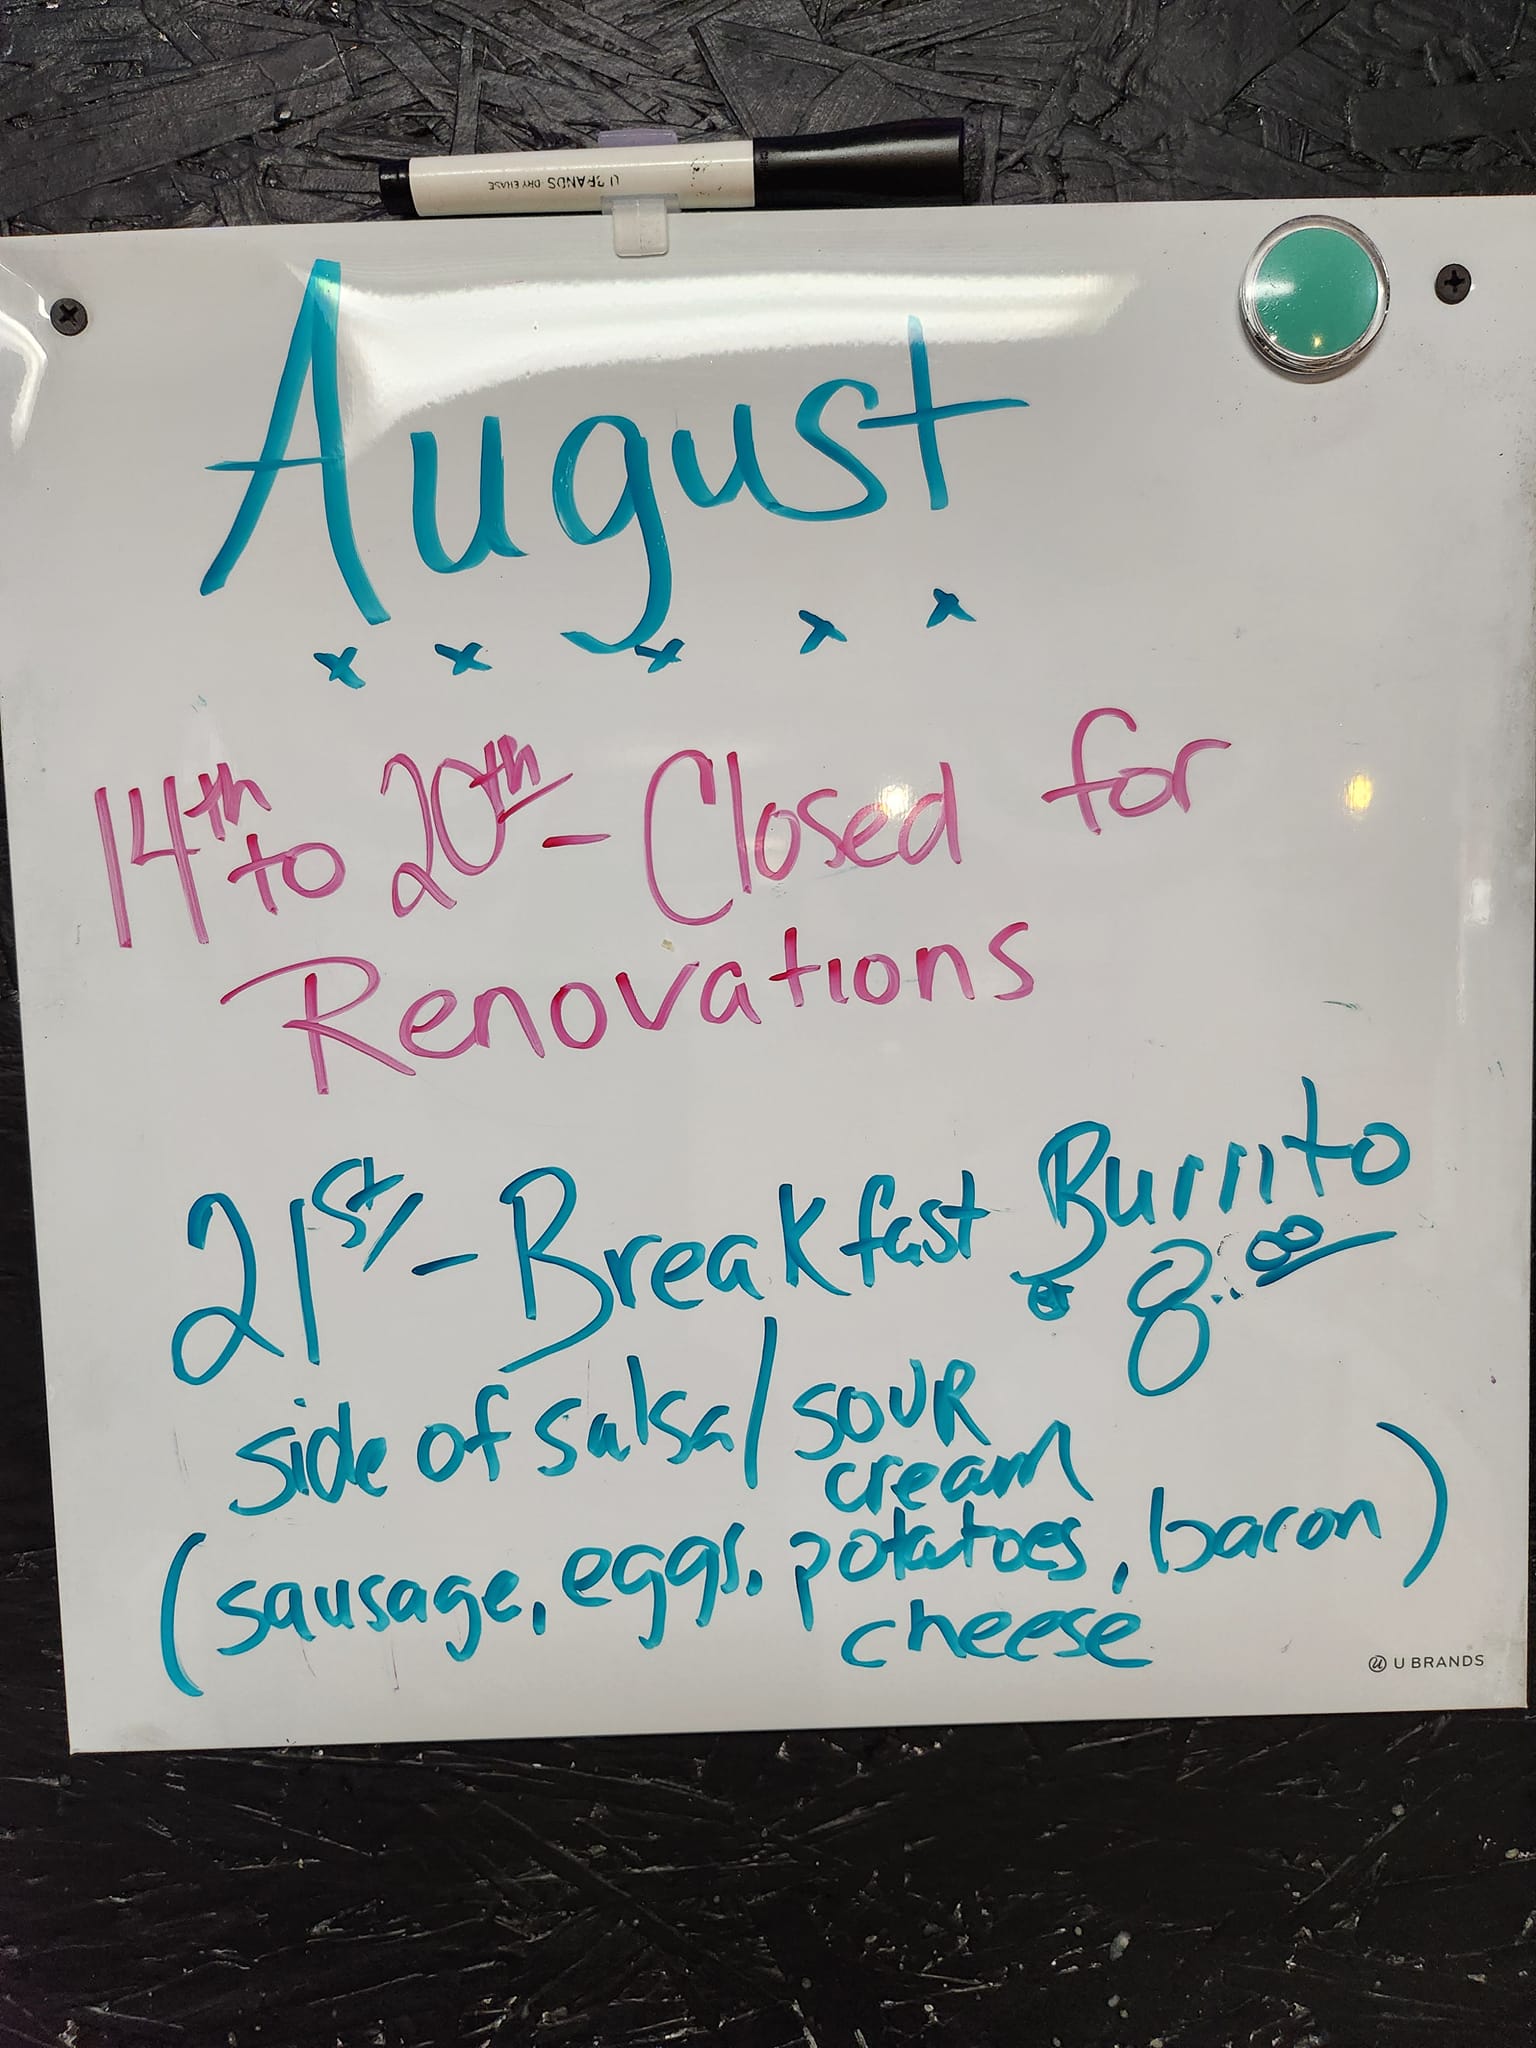 U BRANDS DRY ERASE
August
x x x x x
14th to 20th - Closed for
Renovations
21st - Breakfast Burrito
8:00
side of salsa / sour
cream
(sausage, eggs, potatoes, bacon)
cheese
U BRANDS